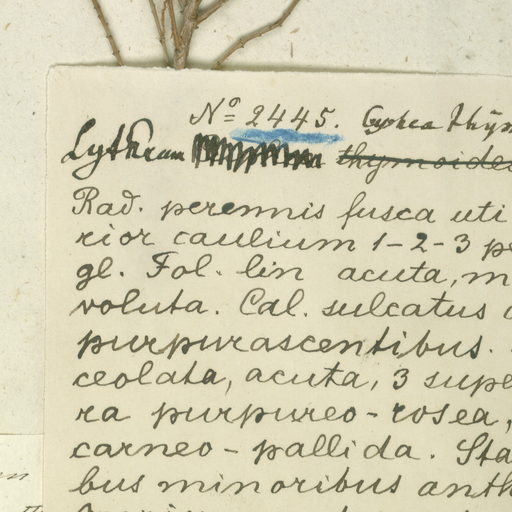 Nº 2445. Cuphea thym
Lythram thymoides
Rad. perennis fusca uti
rior caulium 1-2-3 pe
gl. Fol. lin acuta, m
voluta. Cal. sulcatus
purpurascentibus.
ceolata, acuta, 3 supe
ra purpureo-rosea,
carneo-pallida. Sta
bus minoribus anth